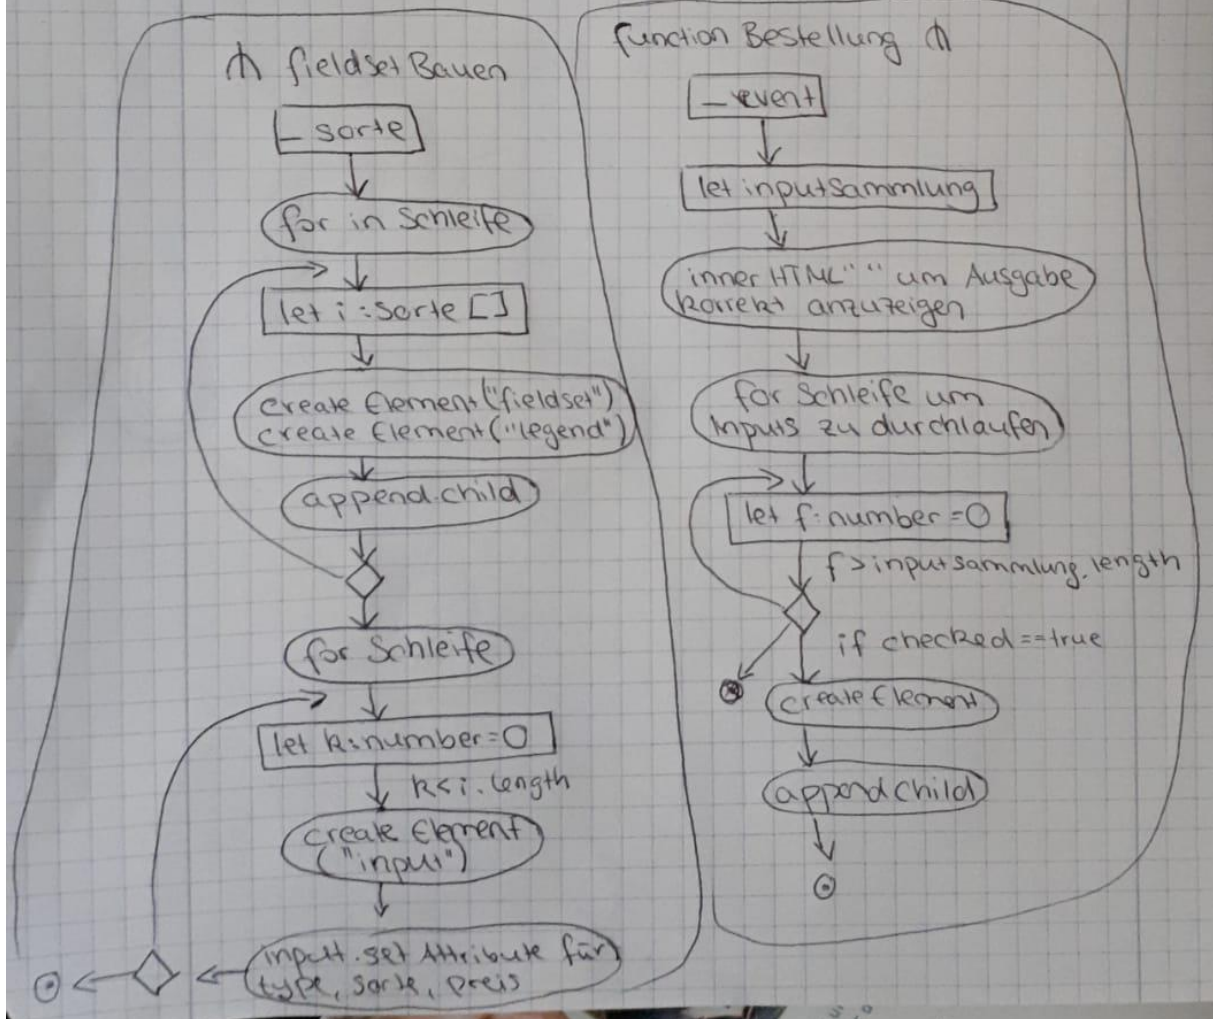 fieldset Bauen
_ sorte
for in Schleife
let i : sorte []
create Element ("fieldset")
create Element ("legend")
append.child
for Schleife
let k:number=0
k<i.length
create Element
("input")
input.set Attribute für
type, sorte, preis
function Bestellung
_ event
let inputsammlung
inner HTML" " um Ausgabe
korrekt anzuzeigen
for Schleife um
Inputs zu durchlaufen
let f:number=0
f>inputsammlung.length
if checked==true
create Element
append child